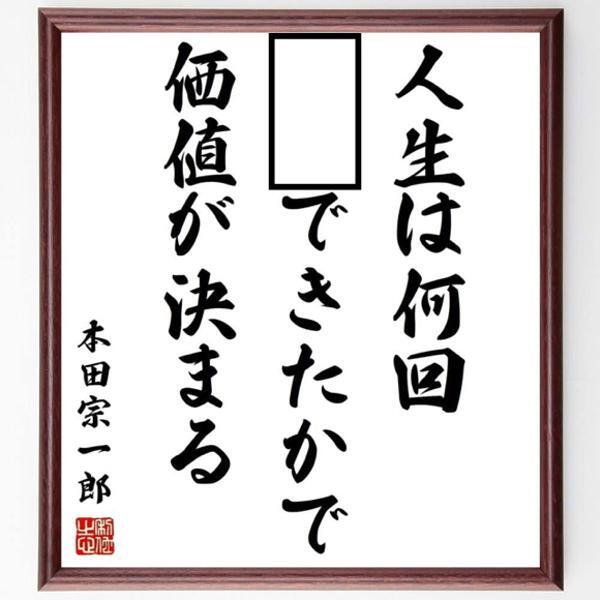 人生は何回
できたかで
価値が決まる
本田宗一郎